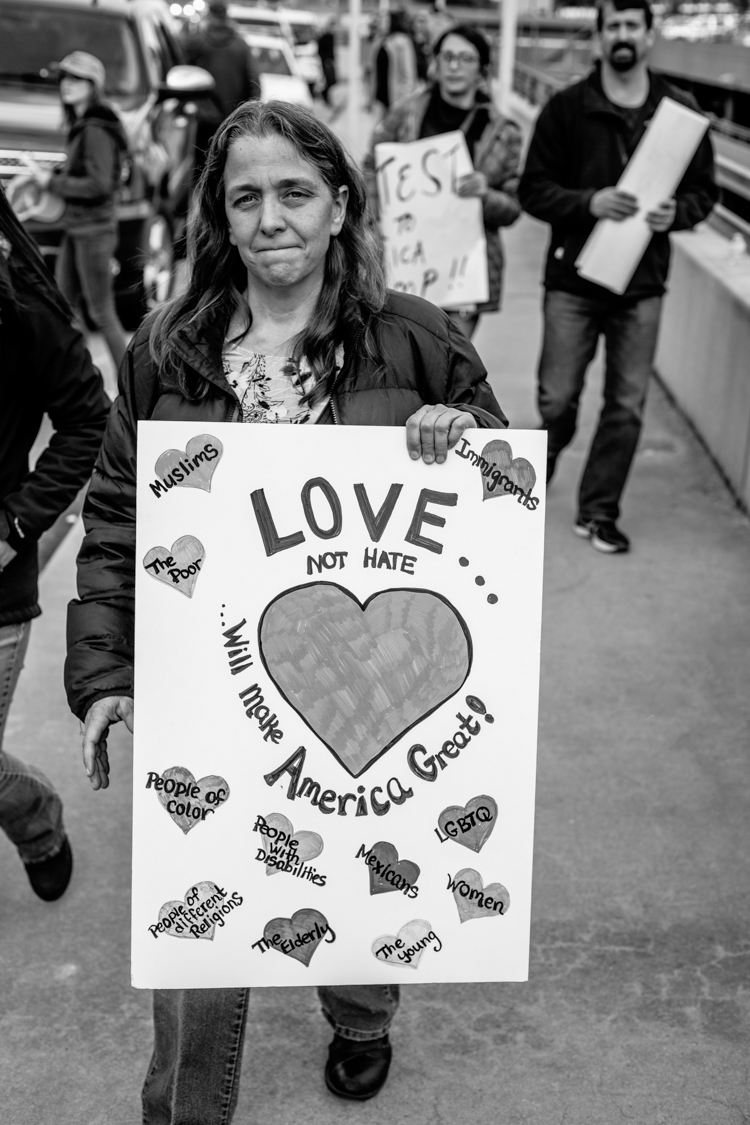 TEST
TO
ICA
P !!
Muslims
Immigrants
LOVE...
NOT HATE
The
Poor
...Will make America Great!
People of
color
People
with
Disabilities
Mexicans
LGBTQ
Women
People of
different
Religions
The Elderly
The young